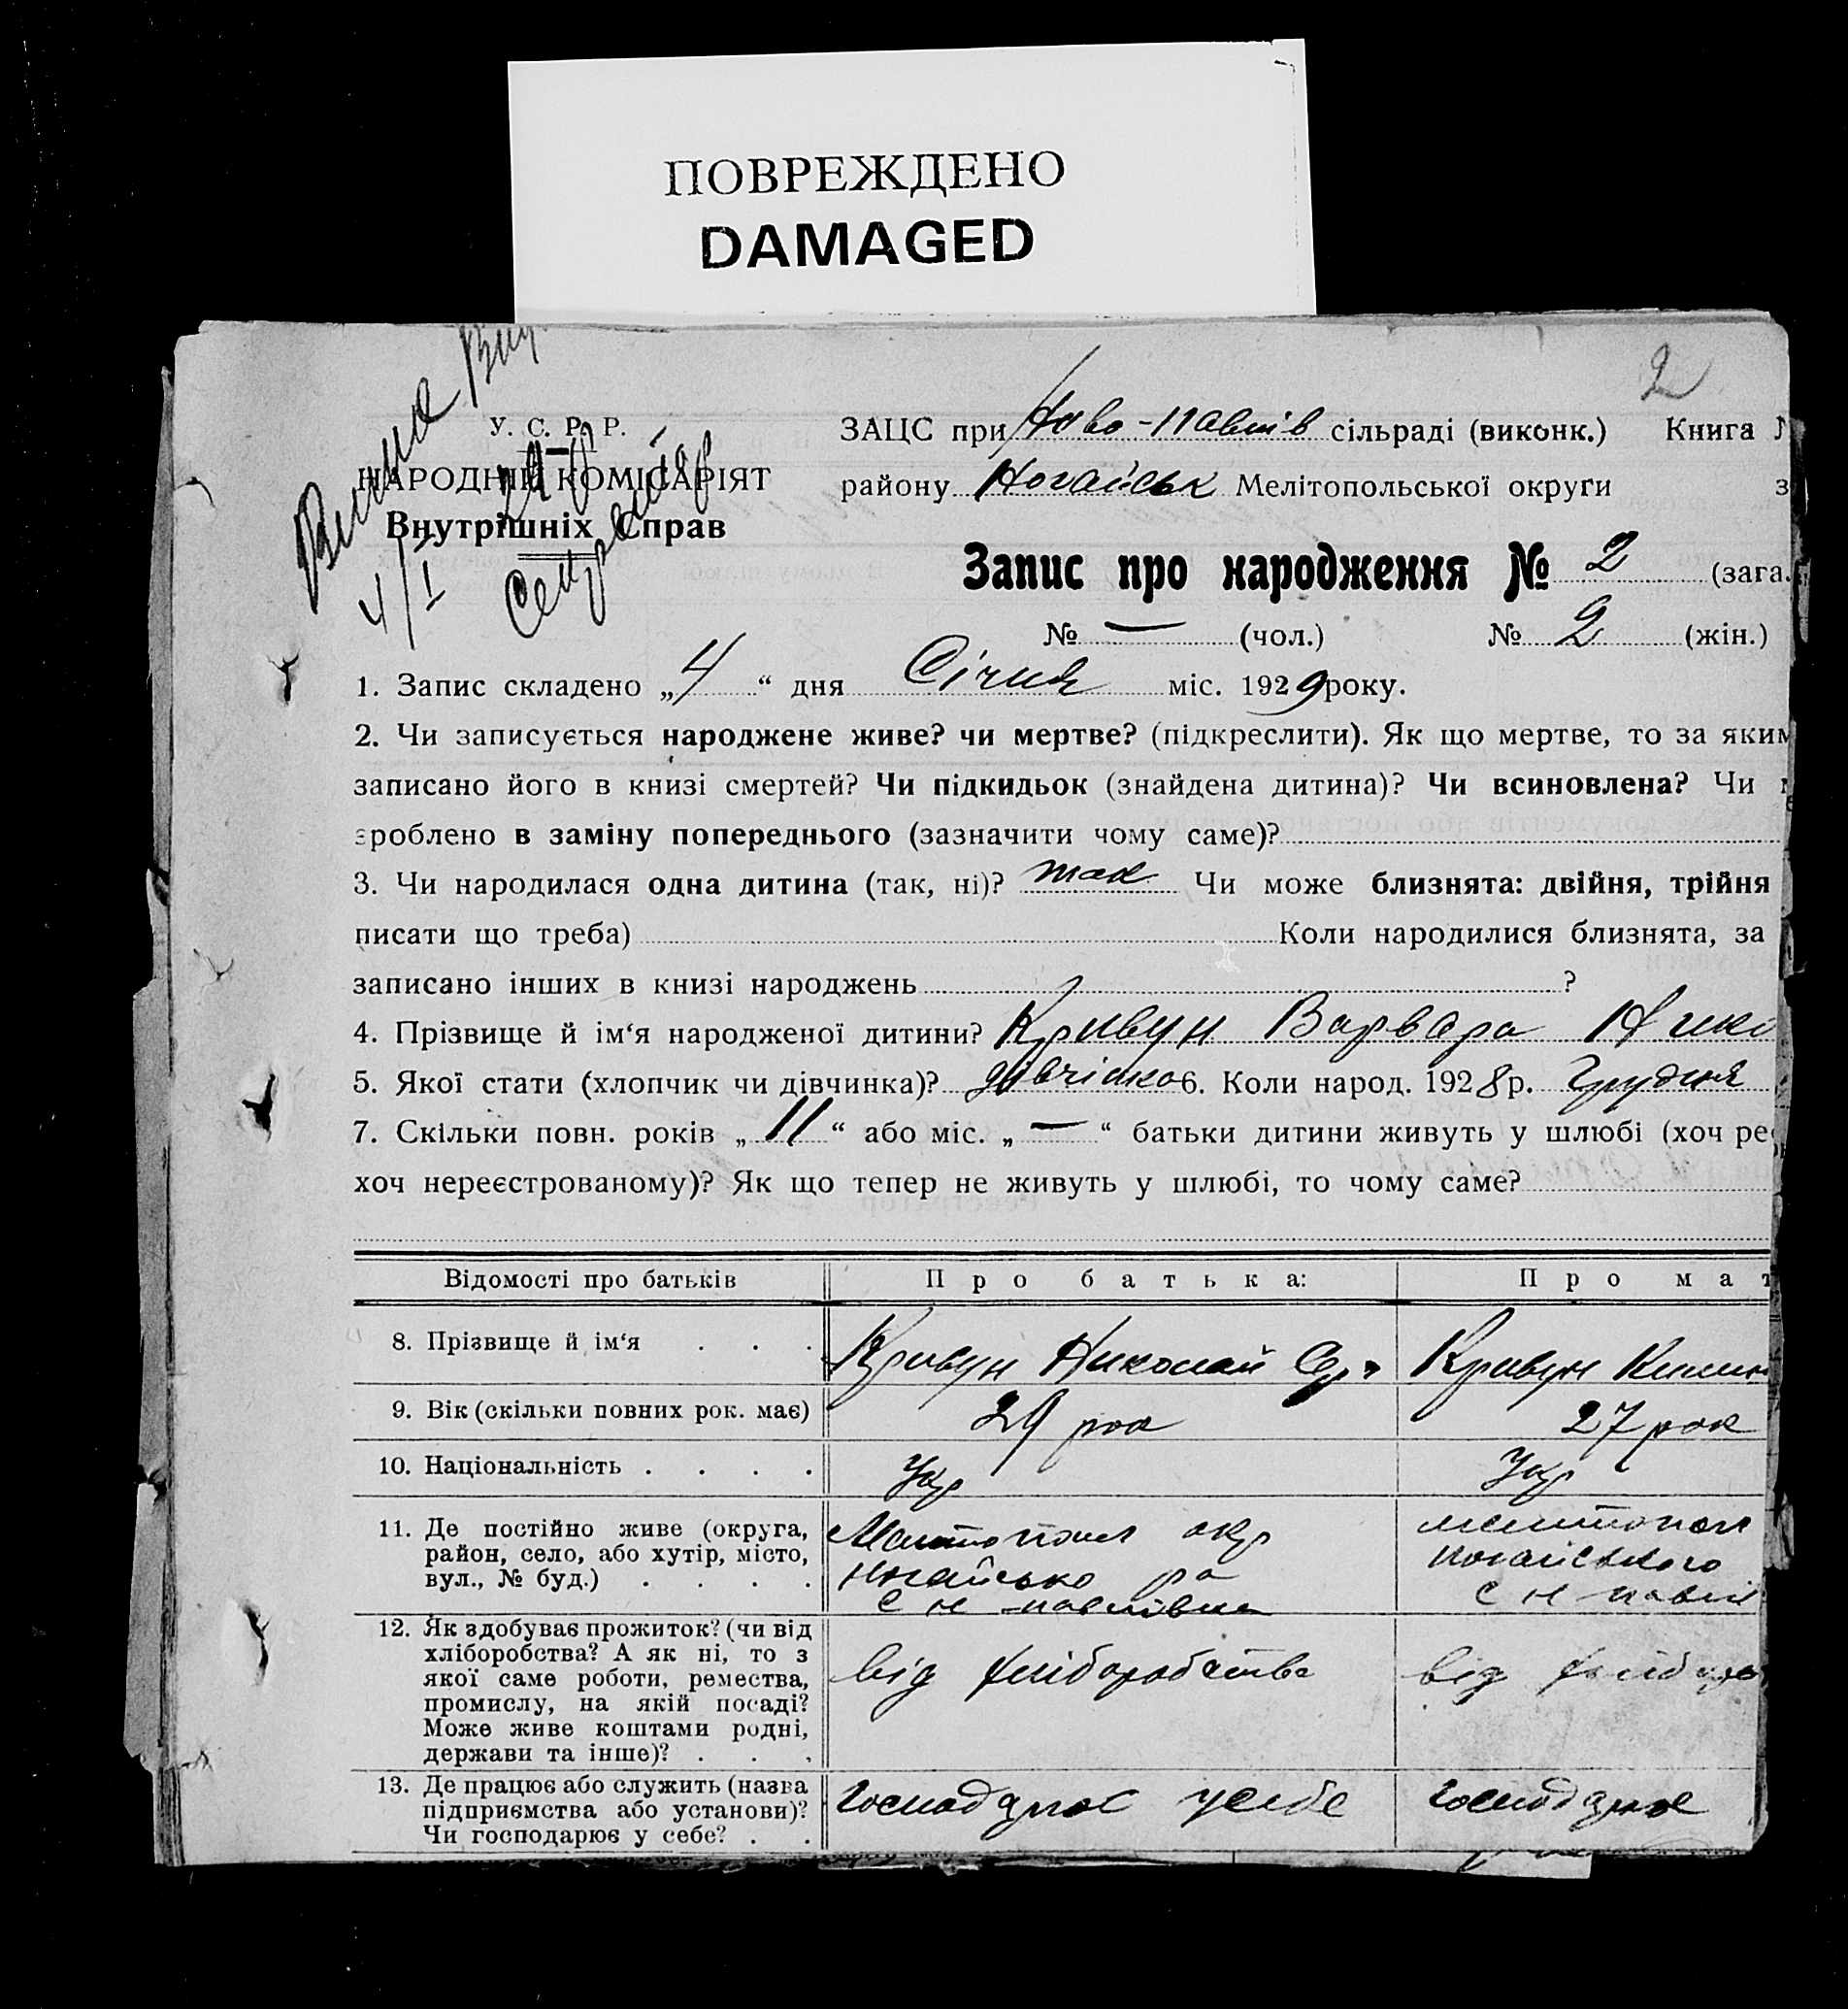 ПОВРЕЖДЕНО
DAMAGED
2
У. С. Р. Р.
НАРОДНІЙ КОМІСАРІЯТ
Внутрішніх Справ
4/I
ЗАЦС при Ново-Павлів сільраді (виконк.) Книга
району Ногайськ Мелітопольської округи
Запис про народження № 2 (зага
№ — (чол.) № 2 (жін.)
1. Запис складено „4“ дня Січня міс. 1929 року.
2. Чи записується народжене живе? чи мертве? (підкреслити). Як що мертве, то за яким
записано його в книзі смертей? Чи підкидьок (знайдена дитина)? Чи всиновлена? Чи
зроблено в заміну попереднього (зазначити чому саме)?
3. Чи народилася одна дитина (так, ні)? так Чи може близнята: двійня, трійня
писати що треба) Коли народилися близнята, за
записано інших в книзі народжень ?
4. Прізвище й ім‘я народженої дитини? Кривун Варвара Нико
5. Якої стати (хлопчик чи дівчинка)? дівчінка 6. Коли народ. 1928 р. Грудня
7. Скільки повн. років „11“ або міс. „—“ батьки дитини живуть у шлюбі (хоч ре
хоч нереєстрованому)? Як що тепер не живуть у шлюбі, то чому саме?
Відомості про батьків Про батька: Про мат
8. Прізвище й ім‘я . . . Кривун Николай Кривун
9. Вік (скільки повних рок. має) 29 рок 27 рок
10. Національність . . . . Укр Укр
11. Де постійно живе (округа,
район, село, або хутір, місто,
вул., № буд.) . . . .
Мелітопол окр
Ногайсько ра
с Н павлівка
Мелітопол
Ногайського
с Н павлі
12. Як здобуває прожиток? (чи від
хліборобства? А як ні, то з
якої саме роботи, ремества,
промислу, на якій посаді?
Може живе коштами родні,
держави та інше)? . . .
від хліборобства
від хлібор
13. Де працює або служить (назва
підприємства або установи)?
Чи господарює у себе? . .
Господарює усебе
Господарює